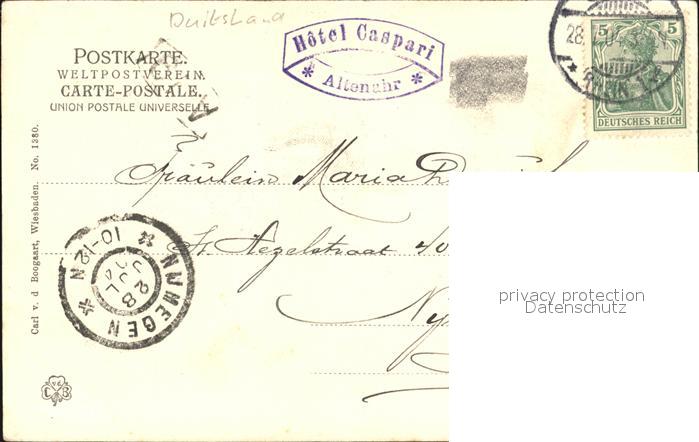 Duitsland
POSTKARTE.
WELTPOSTVEREIN.
CARTE-POSTALE.
UNION POSTALE UNIVERSELLE
Hôtel Caspari
* Altenahr *
28
5 5
DEUTSCHES REICH
Fräulein Maria
St Hezelstraat 40
NIJMEGEN
10-12 N
28 JUL 04
Carl v. d Boogaart, Wiesbaden. No. 1380.
privacy protection
Datenschutz